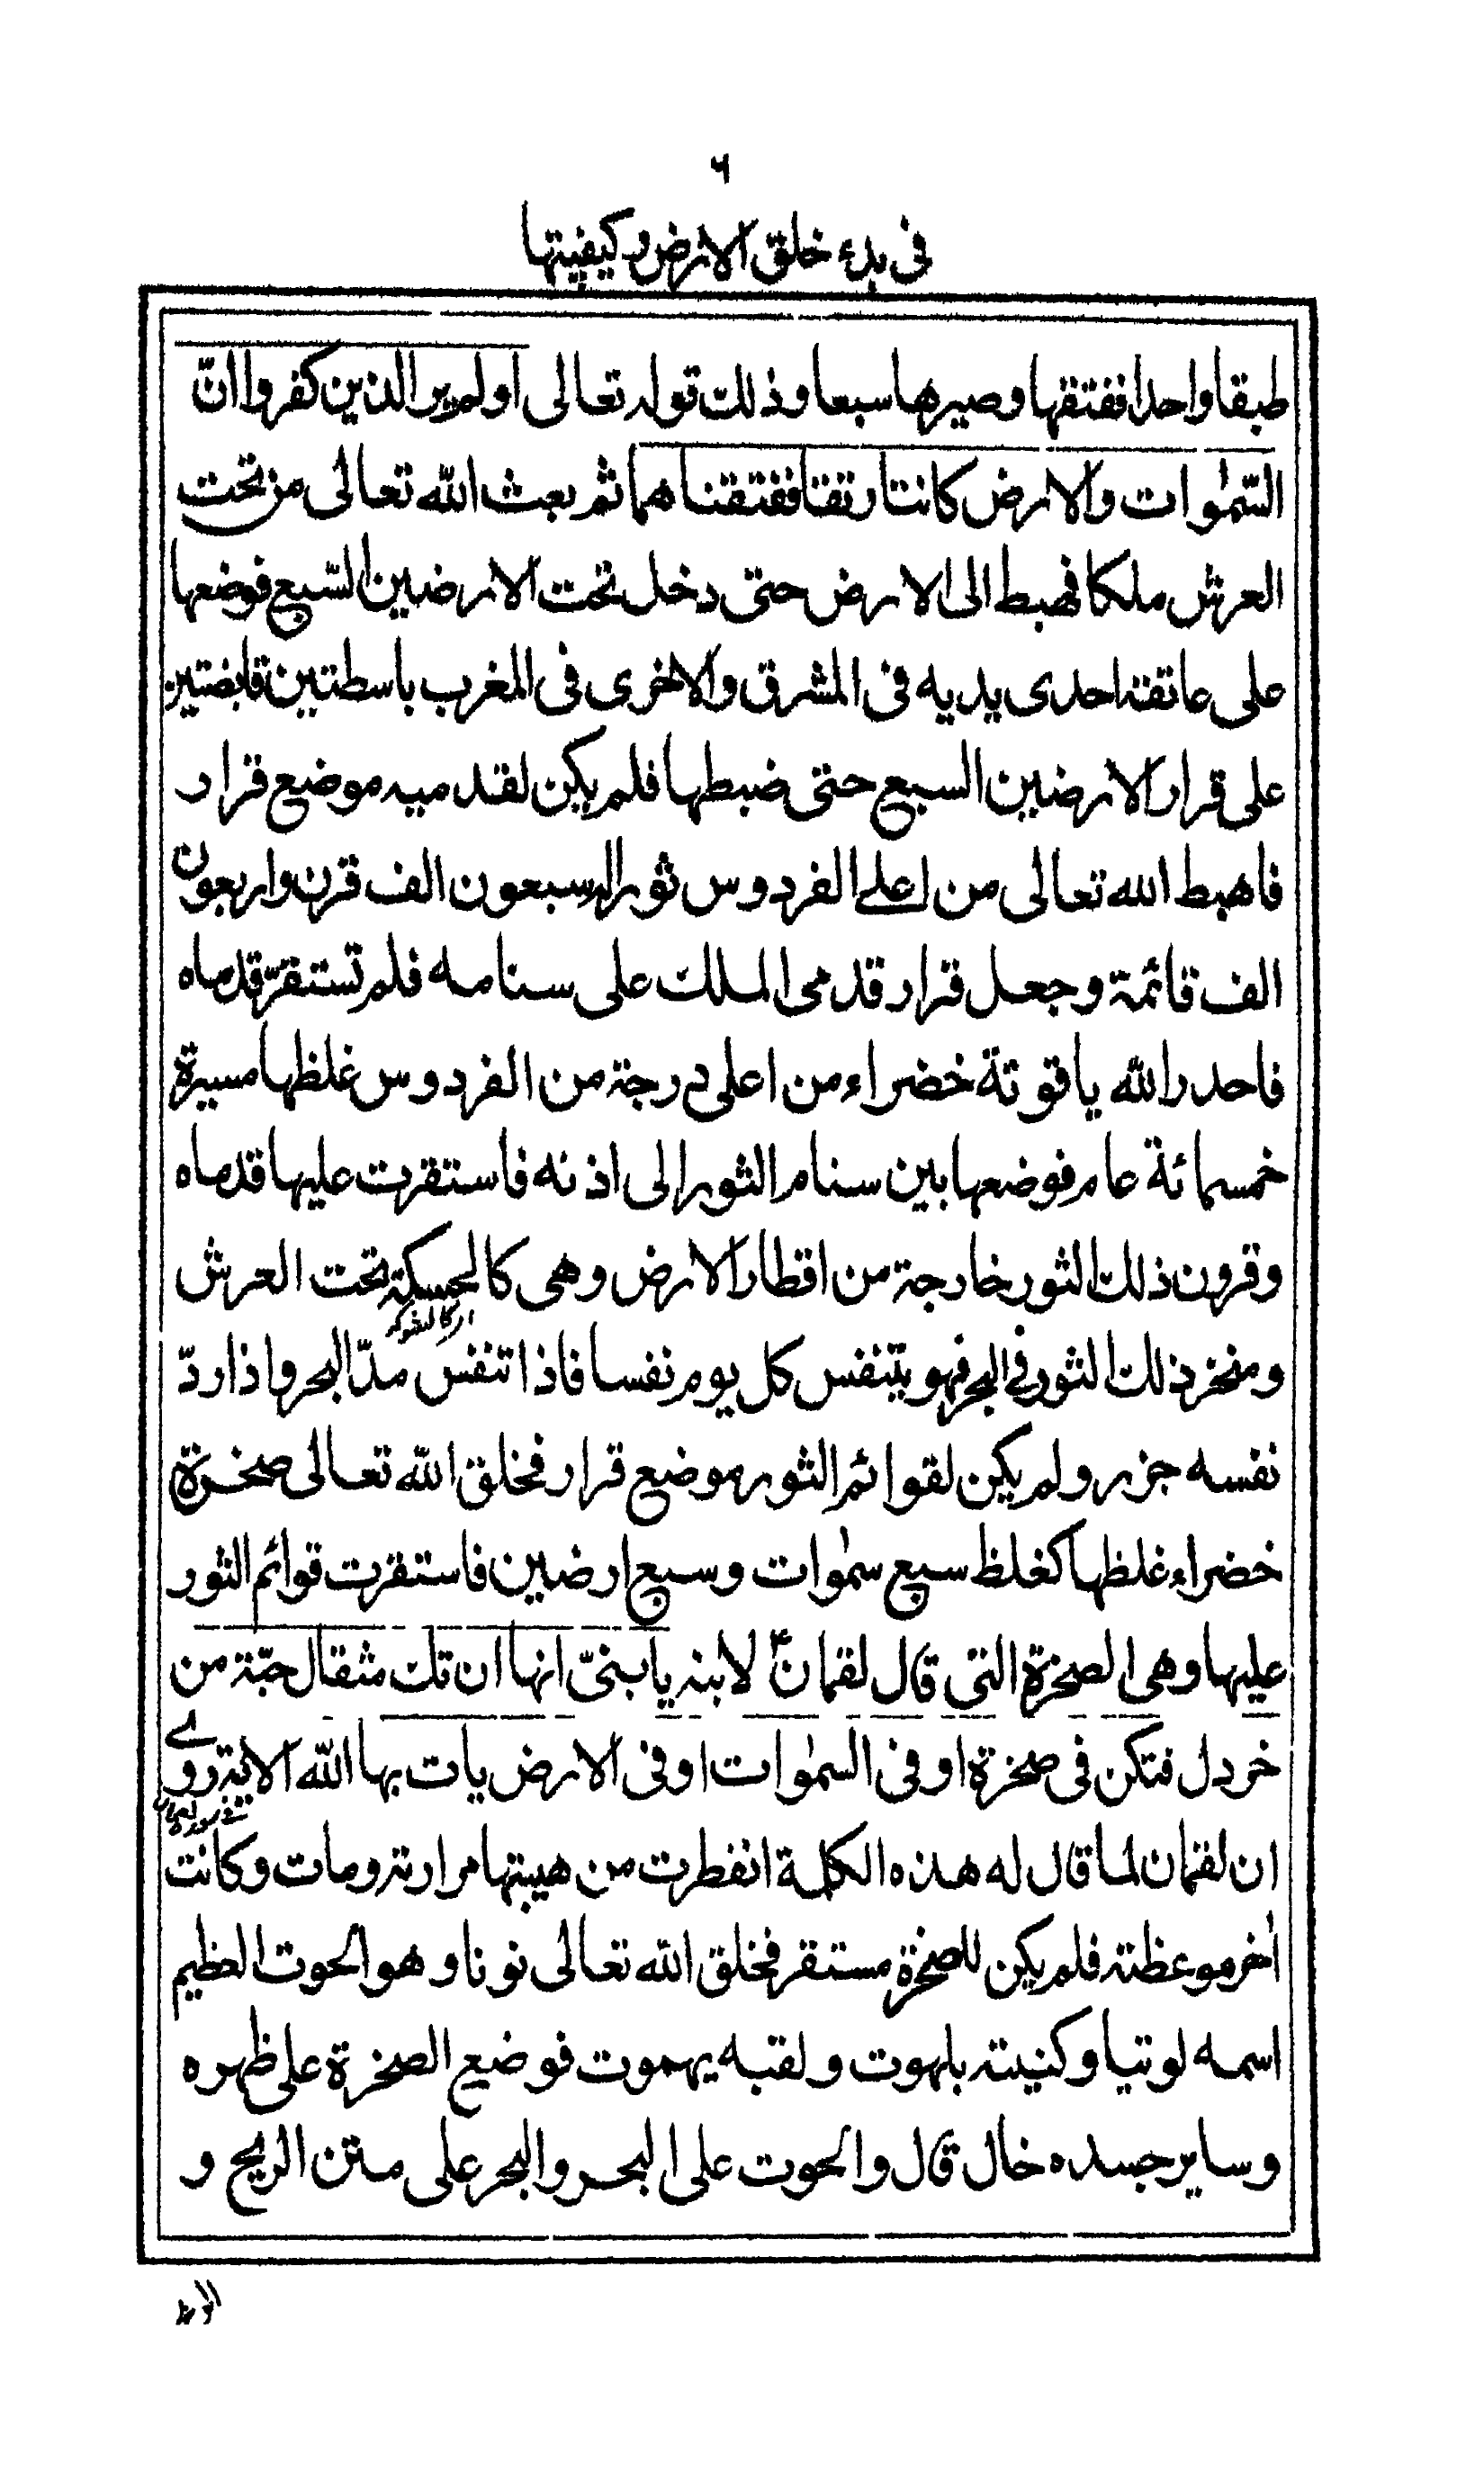 ٦
فى بدء خلق الارض وكيفيتها
طبقا واحدا ففتقها وصيرها سبعا وذلك قوله تعالى اولم ير الذين كفروا انّ
السّمٰوات والارض كانتا رتقا ففتقناهما ثم بعث الله تعالى من تحت
العرش ملكا فهبط الى الارض حتى دخل تحت الارضين السّبع فوضعها
على عاتقه احدى يديه فى المشرق والاخرى فى المغرب باسطتين قابضتين
على قرار الارضين السبع حتى ضبطها فلم يكن لقدميه موضع قرار
فاهبط الله تعالى من اعلے الفردوس ثورا له سبعون الف قرن واربعون
الف قائمة وجعل قرار قدمى الملك على سنامه فلم تستقرّ قدماه
فاحدر الله ياقوتة خضراء من اعلى درجة من الفردوس غلظها مسيرة
خمسمائة عام فوضعها بين سنام الثور الى اذنه فاستقرت عليها قدماه
وقرون ذلك الثور خارجة من اقطار الارض وهى كالحسكة تحت العرش
ومنخر ذلك الثور فى البحر فهو يتنفس كل يوم نفسا فاذا تنفس مدّ البحر واذا ردّ
نفسه جزر ولم يكن لقوائم الثور موضع قرار فخلق الله تعالى صخرة
خضراء غلظها كغلظ سبع سمٰوات وسبع ارضين فاستقرت قوائم الثور
عليها وهى الصخرة التى قال لقمانؑ لابنه يا بنىّ انها ان تك مثقال حبّة من
خردل فتكن فى صخرة او فى السمٰوات او فى الارض يات بها الله الاية روے
ان لقمان لما قال له هذه الكلمة انفطرت من هيبتها مرارته ومات وكانت
اٰخر موعظته فلم يكن للصخرة مستقر فخلق الله تعالى نونا وهو الحوت العظيم
اسمه لوتيا وكنيته بلهوت ولقبه يهموت فوضع الصخرة على ظهره
وساير جسده خال قال والحوت على البحر والبحر على متن الريح و